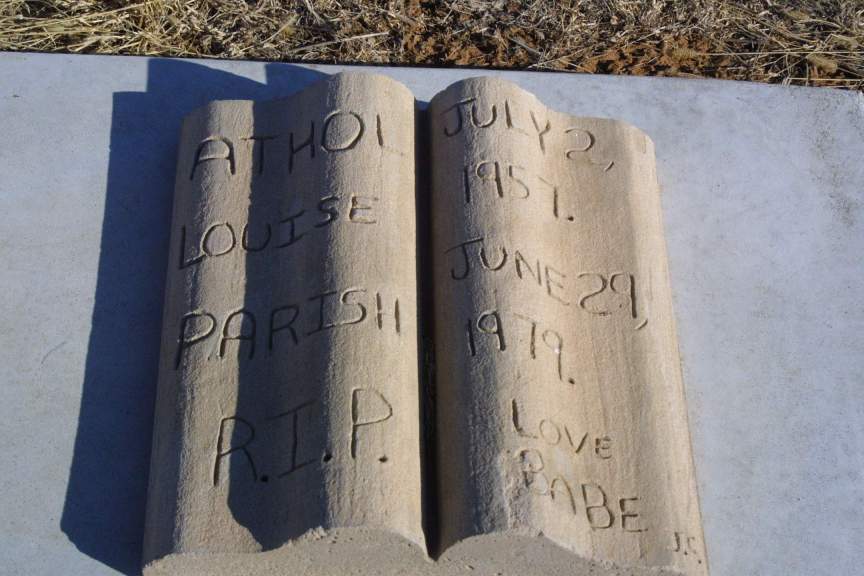 ATHOL
LOUISE
PARISH
R.I.P.
JULY 2,
1957.
JUNE 29,
1979.
LOVE
BABE